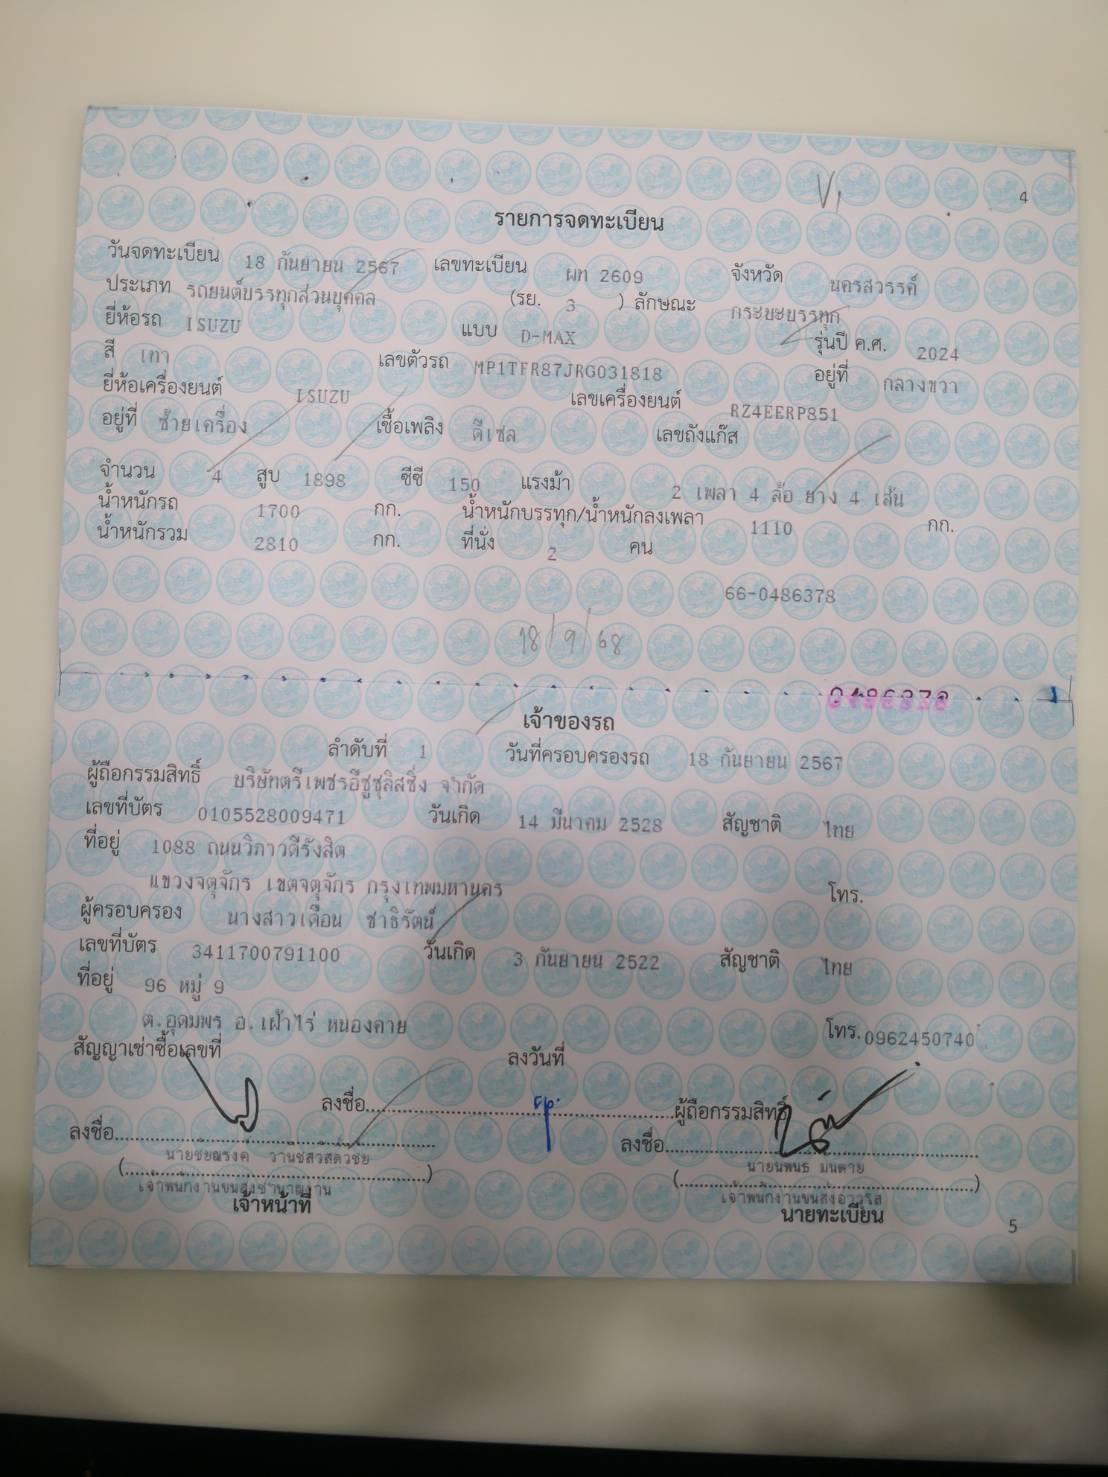 4
รายการจดทะเบียน
วันจดทะเบียน 18 กันยายน 2567 เลขทะเบียน ผท 2609 จังหวัด นครสวรรค์
ประเภท รถยนต์บรรทุกส่วนบุคคล (รย. 3 ) ลักษณะ กระบะบรรทุก
ยี่ห้อรถ ISUZU แบบ D-MAX รุ่นปี ค.ศ. 2024
สี เทา เลขตัวรถ MP1TFR87JRG031818 อยู่ที่ กลางขวา
ยี่ห้อเครื่องยนต์ ISUZU เลขเครื่องยนต์ RZ4EERP851
อยู่ที่ ซ้ายเครื่อง เชื้อเพลิง ดีเซล เลขถังแก๊ส
จำนวน 4 สูบ 1898 ซีซี 150 แรงม้า 2 เพลา 4 ล้อ ยาง 4 เส้น
น้ำหนักรถ 1700 กก. น้ำหนักบรรทุก/น้ำหนักลงเพลา 1110 กก.
น้ำหนักรวม 2810 กก. ที่นั่ง 2 คน
66-0486378
18/9/68
0486378
เจ้าของรถ
ลำดับที่ 1 วันที่ครอบครองรถ 18 กันยายน 2567
ผู้ถือกรรมสิทธิ์ บริษัทตรีเพชรอีซูซุลิสซิ่ง จำกัด
เลขที่บัตร 0105528009471 วันเกิด 14 มีนาคม 2528 สัญชาติ ไทย
ที่อยู่ 1088 ถนนวิภาวดีรังสิต
แขวงจตุจักร เขตจตุจักร กรุงเทพมหานคร โทร.
ผู้ครอบครอง นางสาวเดือน ชาธิรัตน์
เลขที่บัตร 3411700791100 วันเกิด 3 กันยายน 2522 สัญชาติ ไทย
ที่อยู่ 96 หมู่ 9
ต.อุดมพร อ.เฝ้าไร่ หนองคาย โทร. 0962450740
สัญญาเช่าซื้อเลขที่ ลงวันที่
ลงชื่อ ผู้ถือกรรมสิทธิ์
ลงชื่อ ลงชื่อ
นายชัยณรงค์ วานิชสวัสดิ์วิชัย
เจ้าพนักงานขนส่งชำนาญงาน เจ้าพนักงานขนส่งอาวุโส
เจ้าหน้าที่ นายทะเบียน
5